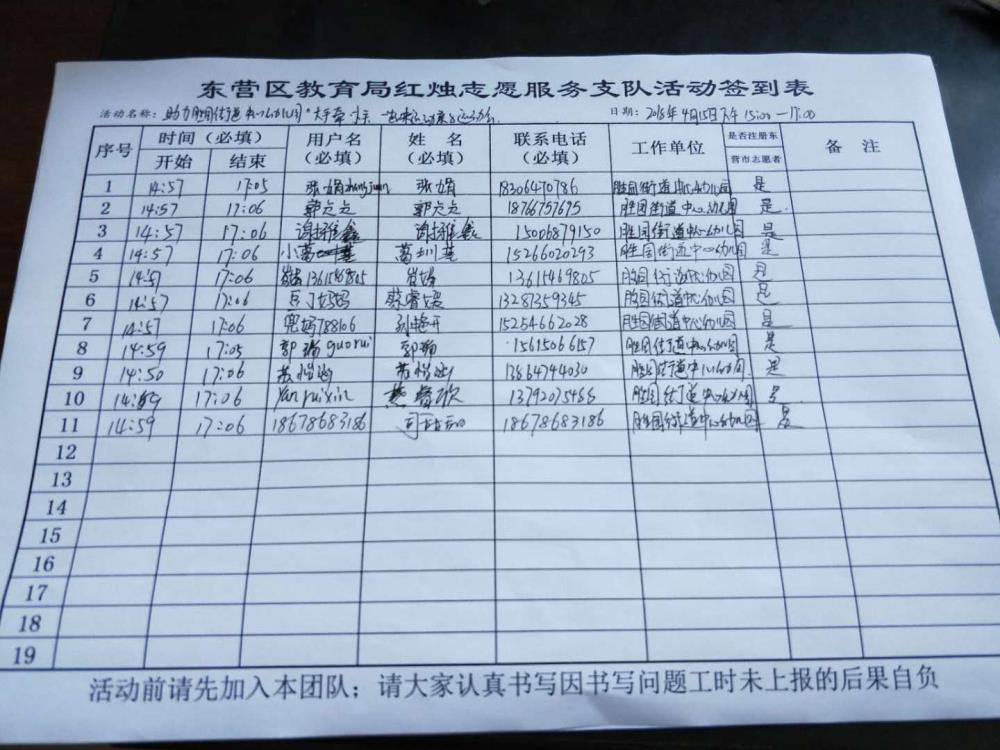 东营区教育局红烛志愿服务支队活动签到表
活动名称：助力胜园街道中心幼儿园"大手牵小 日期：2018年4月15日下午15:00—17:00
序号 时间（必填） 用户名（必填） 姓 名（必填） 联系电话（必填） 工作单位 是否注册东营市志愿者 备 注
开始 结束
1 14:57 17:05 张娟zhangjuan 张娟 18306470786 胜园街道中心幼儿园 是
2 14:57 17:06 郭 郭 18766757675 胜园街道中心幼儿园 是
3 14:57 17:06 谢 鑫 谢 鑫 15006879150 胜园街道中心幼儿园 是
4 14:57 17:06 小葛 葛 15266020293 胜园街道中心幼儿园 是
5 14:57 17:06 13615469805 胜园街道中心幼儿园 是
6 14:57 17:06 豆丁妈妈 蔡睿媛 13287359345 胜园街道中心幼儿园 是
7 14:57 17:06 788106 孙艳开 15254662028 胜园街道中心幼儿园 是
8 14:59 17:05 郭瑞guorui 郭瑞 15615066157 胜园街道中心幼儿园 是
9 14:50 17:06 苏 苏 13864794030 胜园街道中心幼儿园 是
10 14:59 17:06 Yanruixin 燕睿欣 胜园街道中心幼儿园 是
11 14:59 17:06 18678683186 司 18678683186 胜园街道中心幼儿园 是
12
13
14
15
16
17
18
19
活动前请先加入本团队；请大家认真书写因书写问题工时未上报的后果自负